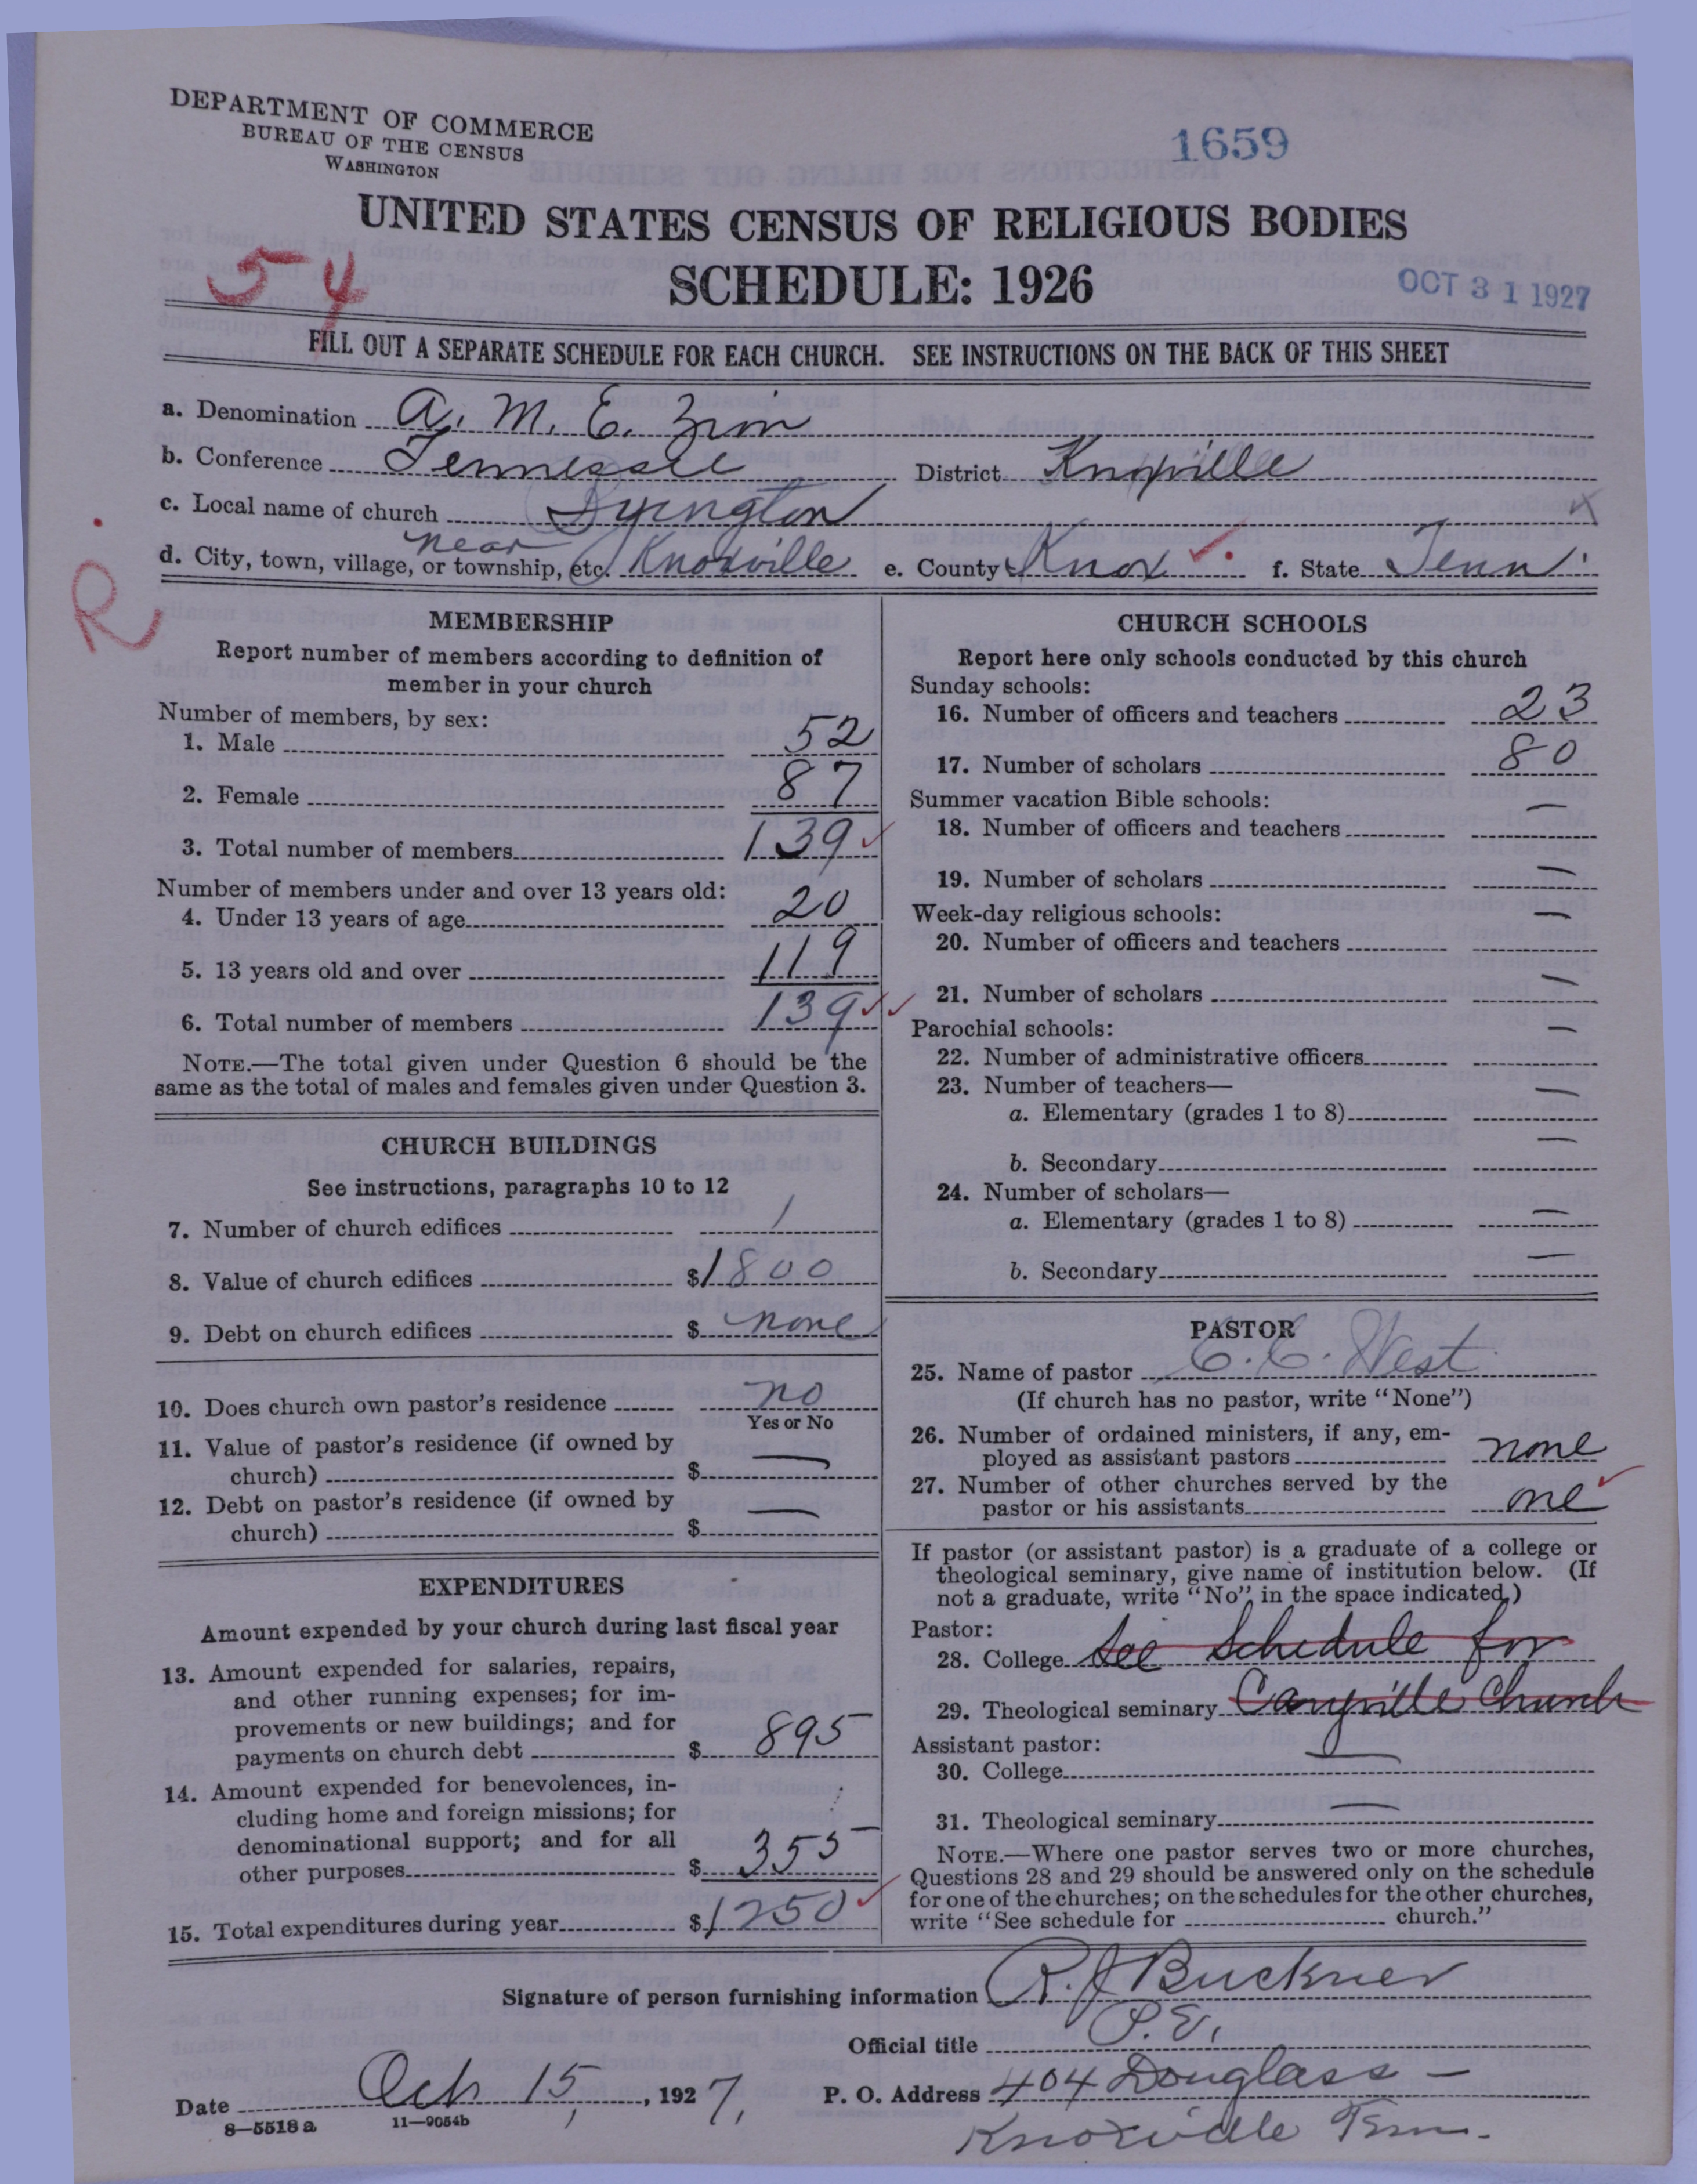 DEPARTMENT OF COMMERCE
BUREAU OF THE CENSUS
WASHINGTON
1659
UNITED STATES CENSUS OF RELIGIOUS BODIES
54
SCHEDULE: 1926
OCT 31 1927
FILL OUT A SEPARATE SCHEDULE FOR EACH CHURCH. SEE INSTRUCTIONS ON THE BACK OF THIS SHEET
a. Denomination A. M. E. Zion
b. Conference Tennessee District Knoxville
c. Local name of church Byington
near
d. City, town, village, or township, etc. Knoxville e. County Knox f. State Tenn
R
MEMBERSHIP
Report number of members according to definition of
member in your church
Number of members, by sex:
1. Male 52
2. Female 87
3. Total number of members 139
Number of members under and over 13 years old:
4. Under 13 years of age 20
5. 13 years old and over 119
6. Total number of members 139
NOTE.—The total given under Question 6 should be the
same as the total of males and females given under Question 3.
CHURCH BUILDINGS
See instructions, paragraphs 10 to 12
7. Number of church edifices 1
8. Value of church edifices $1800
9. Debt on church edifices $ none
10. Does church own pastor's residence no
Yes or No
11. Value of pastor's residence (if owned by
church) $ —
12. Debt on pastor's residence (if owned by
church) $ —
EXPENDITURES
Amount expended by your church during last fiscal year
13. Amount expended for salaries, repairs,
and other running expenses; for im-
provements or new buildings; and for
payments on church debt $ 895
14. Amount expended for benevolences, in-
cluding home and foreign missions; for
denominational support; and for all
other purposes $ 355
15. Total expenditures during year $1250
CHURCH SCHOOLS
Report here only schools conducted by this church
Sunday schools:
16. Number of officers and teachers 23
17. Number of scholars 80
Summer vacation Bible schools:
18. Number of officers and teachers —
19. Number of scholars —
Week-day religious schools:
20. Number of officers and teachers —
21. Number of scholars —
Parochial schools:
22. Number of administrative officers —
23. Number of teachers—
a. Elementary (grades 1 to 8) —
b. Secondary —
24. Number of scholars—
a. Elementary (grades 1 to 8) —
b. Secondary —
PASTOR
25. Name of pastor C. C. West
(If church has no pastor, write "None")
26. Number of ordained ministers, if any, em-
ployed as assistant pastors none
27. Number of other churches served by the
pastor or his assistants one
If pastor (or assistant pastor) is a graduate of a college or
theological seminary, give name of institution below. (If
not a graduate, write "No" in the space indicated.)
Pastor:
28. College See Schedule for
29. Theological seminary Caryville Church
Assistant pastor:
30. College —
31. Theological seminary —
NOTE.—Where one pastor serves two or more churches,
Questions 28 and 29 should be answered only on the schedule
for one of the churches; on the schedules for the other churches,
write "See schedule for church."
Signature of person furnishing information R. J. Buckner
Official title P. E.
Date Oct 15, 1927, P. O. Address 404 Douglass —
8—5518a 11—9054b
Knoxville Tenn.